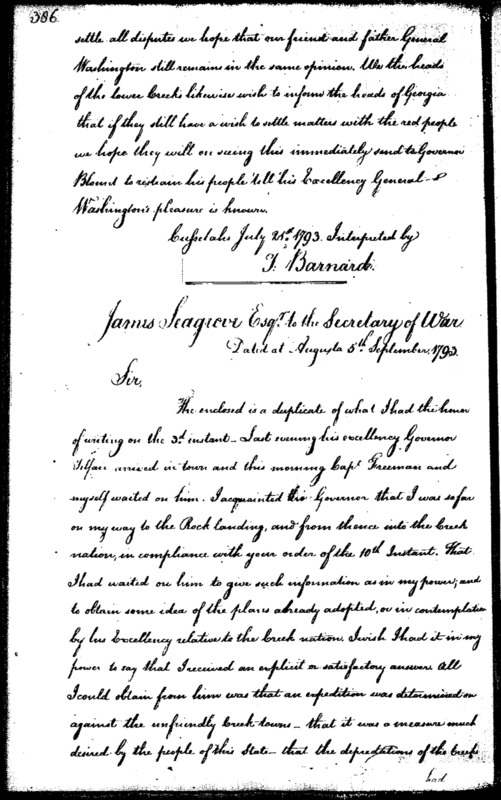 386.
settle all disputes we hope that our friend and father General
Washington still remains in the same opinion. We the heads
of the lower Creeks likewise wish to inform the heads of Georgia
that if they still have a wish to settle matters with the red people
we hope they will on seeing this immediately send to Governor
Blount to restrain his people 'till his Excellency General
Washington's pleasure is known.
Cussetahs July 21st. 1793. Interpreted by
T. Barnard.
James Seagrove Esqr. to the Secretary of War
Dated at Augusta 5th September, 1793.
Sir,
The enclosed is a duplicate of what I had the honor
of writing on the 3d. instant – Last evening his excellency Governor
Telfair arrived in town and this morning Capt. Freeman and
myself waited on him. I acquainted the Governor that I was so far
on my way to the Rock landing, and from thence into the Creek
nation, in compliance with your order of the 10th Instant. That
I had waited on him to give such information as in my power, and
to obtain some idea of the plans already adopted, or in contemplation
by his Excellency relative to the Creek nation. I wish I had it in my
power to say that I received an explicit or satisfactory answer. All
I could obtain from him was that an expedition was determined on
against the unfriendly Creek towns – that it was a measure much
desired by the people of this State – that the depredations of the Creeks
had